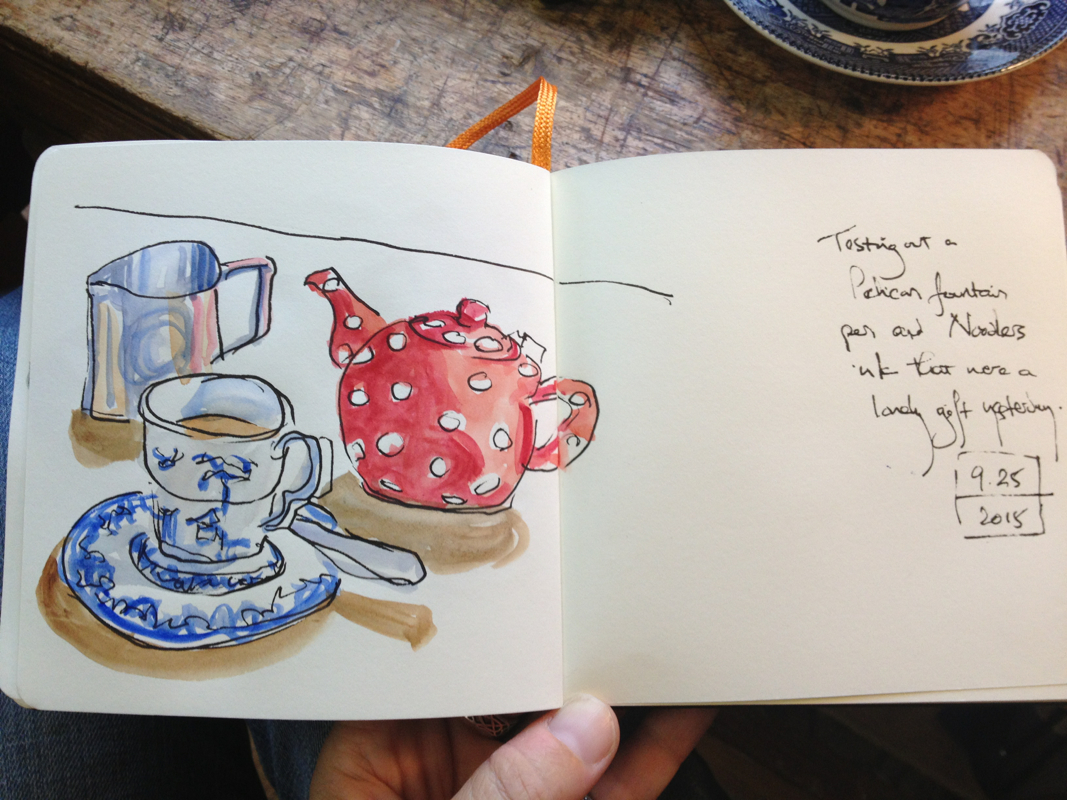 Testing out a
Pelican fountain
pen and Noodlers
ink that were a
lovely gift yesterday.
9.25
2015